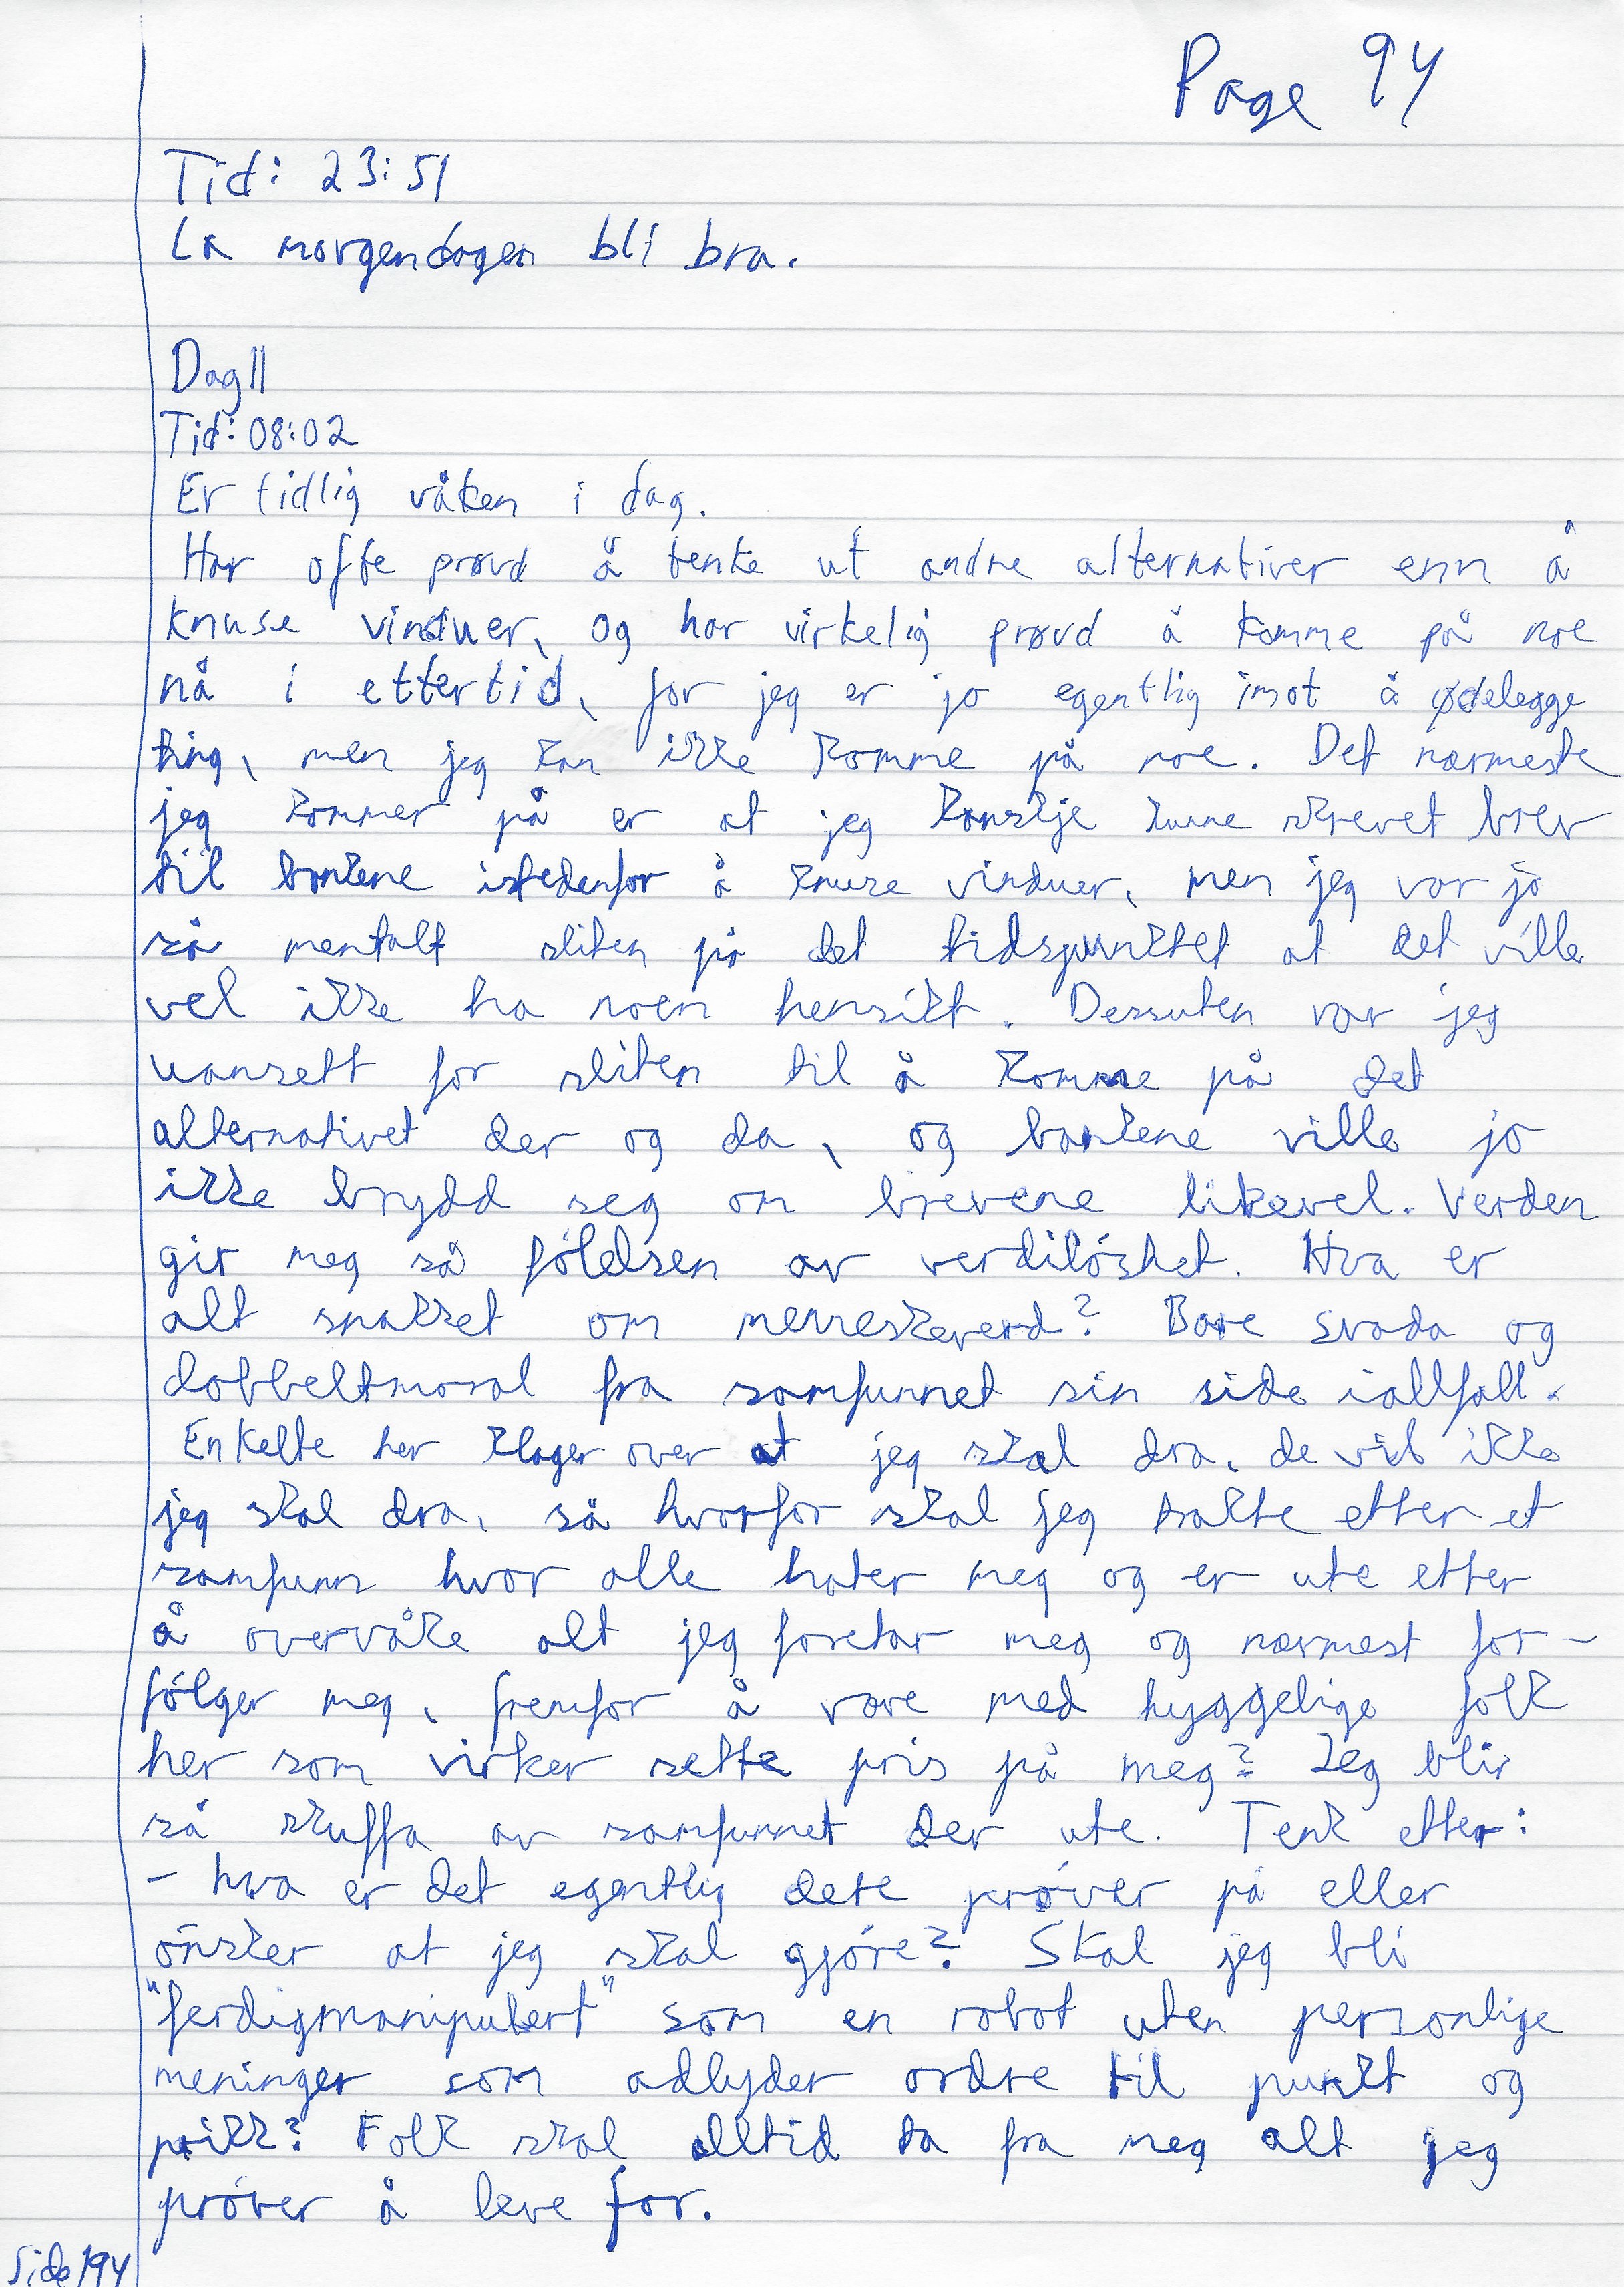 Page 94
Tid: 23:51
La morgendagen bli bra.
Dag 11
Tid: 08:02
Er tidlig våken i dag.
Har ofte prøvd å tenke ut andre alternativer enn å
knuse vinduer, og har virkelig prøvd å komme på noe
nå i ettertid, for jeg er jo egentlig imot å ødelegge
ting, men jeg kan ikke komme på noe. Det nærmeste
jeg kommer på er at jeg kanskje kunne skrevet brev
til bankene istedenfor å knuse vinduer, men jeg var jo
så mentalt sliten på det tidspunktet at det ville
vel ikke ha noen hensikt. Dessuten var jeg
uansett for sliten til å komme på det
alternativet der og da, og bankene ville jo
ikke brydd seg om brevene likevel. Verden
gir meg så følelsen av verdiløshet. Hva er
alt snakket om menneskeverd? Bare svada og
dobbeltmoral fra samfunnet sin side iallfall.
Enkelte her klager over at jeg skal dra, de vil ikke
jeg skal dra, så hvorfor skal jeg trakte etter et
samfunn hvor alle hater meg og er ute etter
å overvåke alt jeg foretar meg og nærmest for-
følger meg, fremfor å være med hyggelige folk
her som virker sette pris på meg? Jeg blir
så skuffa av samfunnet der ute. Tenk etter:
- hva er det egentlig dere prøver på eller
ønsker at jeg skal gjøre? Skal jeg bli
"ferdigmanipulert" som en robot uten personlige
meninger som adlyder ordre til punkt og
prikk? Folk skal alltid ta fra meg alt jeg
prøver å leve for.
Side 194